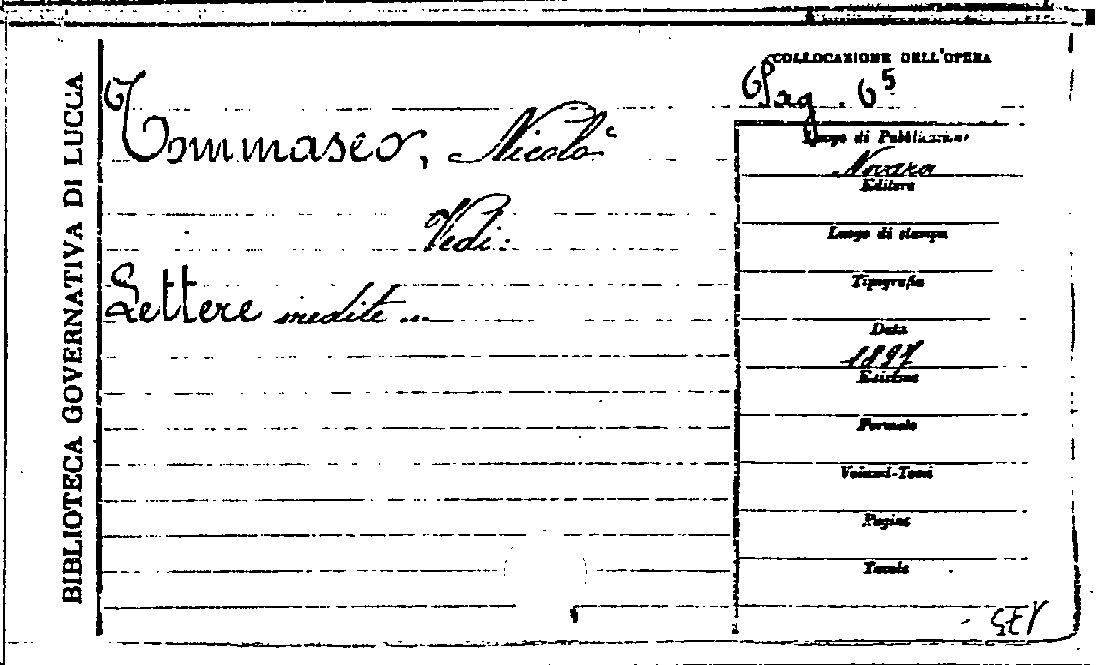 BIBLIOTECA GOVERNATIVA DI LUCCA
Tommaseo, Nicolò
Vedi:
Lettere inedite ...
COLLOCAZIONE DELL'OPERA
Pag. 6⁵
Luogo di Pubblicazione
Novara
Editore
Luogo di stampa
Tipografia
Data
1897
Edizione
Formato
Volumi-Tomi
Pagine
Tavole